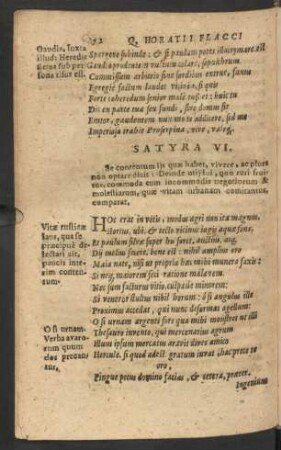 92 Q. HORATII FLACCI
Gaudia, Iuxta
illud: Heredis
fletus sub per-
sona risus est.
Spargere subinde: & si paulum potes illacrymare. est
Gaudia prodentem vultum celare, sepulchrum
Commissum arbitrio sine sordibus exstrue, funus
Egregiè factum laudet vicinia, si quis
Forte coheredum senior malè tussiet: huic tu
Dic ex parte tua seu fundi, sive domus sit
Emtor, gaudentem nummo te addicere, sed me
Imperiosa trahit Proserpina, vive, valeq.
SATYRA VI.
Se contentum iis quæ habet, vivere, ac plura
non optare dicit: Deinde otij sui, quo ruri frui-
tur, commoda cum incommodis negotiorum &
molestiarum, quæ vitam urbanam comitantur,
comparat.
Vitæ rusticæ
laus, qua se
præcipuè de-
lectari ait,
paucis inte-
rim conten-
tum.
HOc erat in votis, modus agri non ita magnus,
Hortus, ubi, & tecto vicinus iugis aquæ fons,
Et paulum silvæ super his foret, auctius, atq.
Dij melius fecere, bene est: nihil amplius oro
Maia nate, nisi ut propria hæc mihi munera faxis:
Si neq. maiorem feci ratione malâ rem.
Nec sum facturus vitio, culpâue minorem:
Si veneror stultus nihil horum: ô si angulus ille
Proximus accedat, qui nunc deformat agellum:
O si urnam.
Verba avaro-
rum quum
deas precan-
tur,
O si urnam argenti fors qua mihi monstret ut illi
Thesauro invento, qui mercenarius agrum
Illum ipsum mercatus aravit dives amico
Hercule. si quod adest gratum iuvat, hac prece te
oro,
Pingue pecus domino facias, & cetera, præter
Ingenium